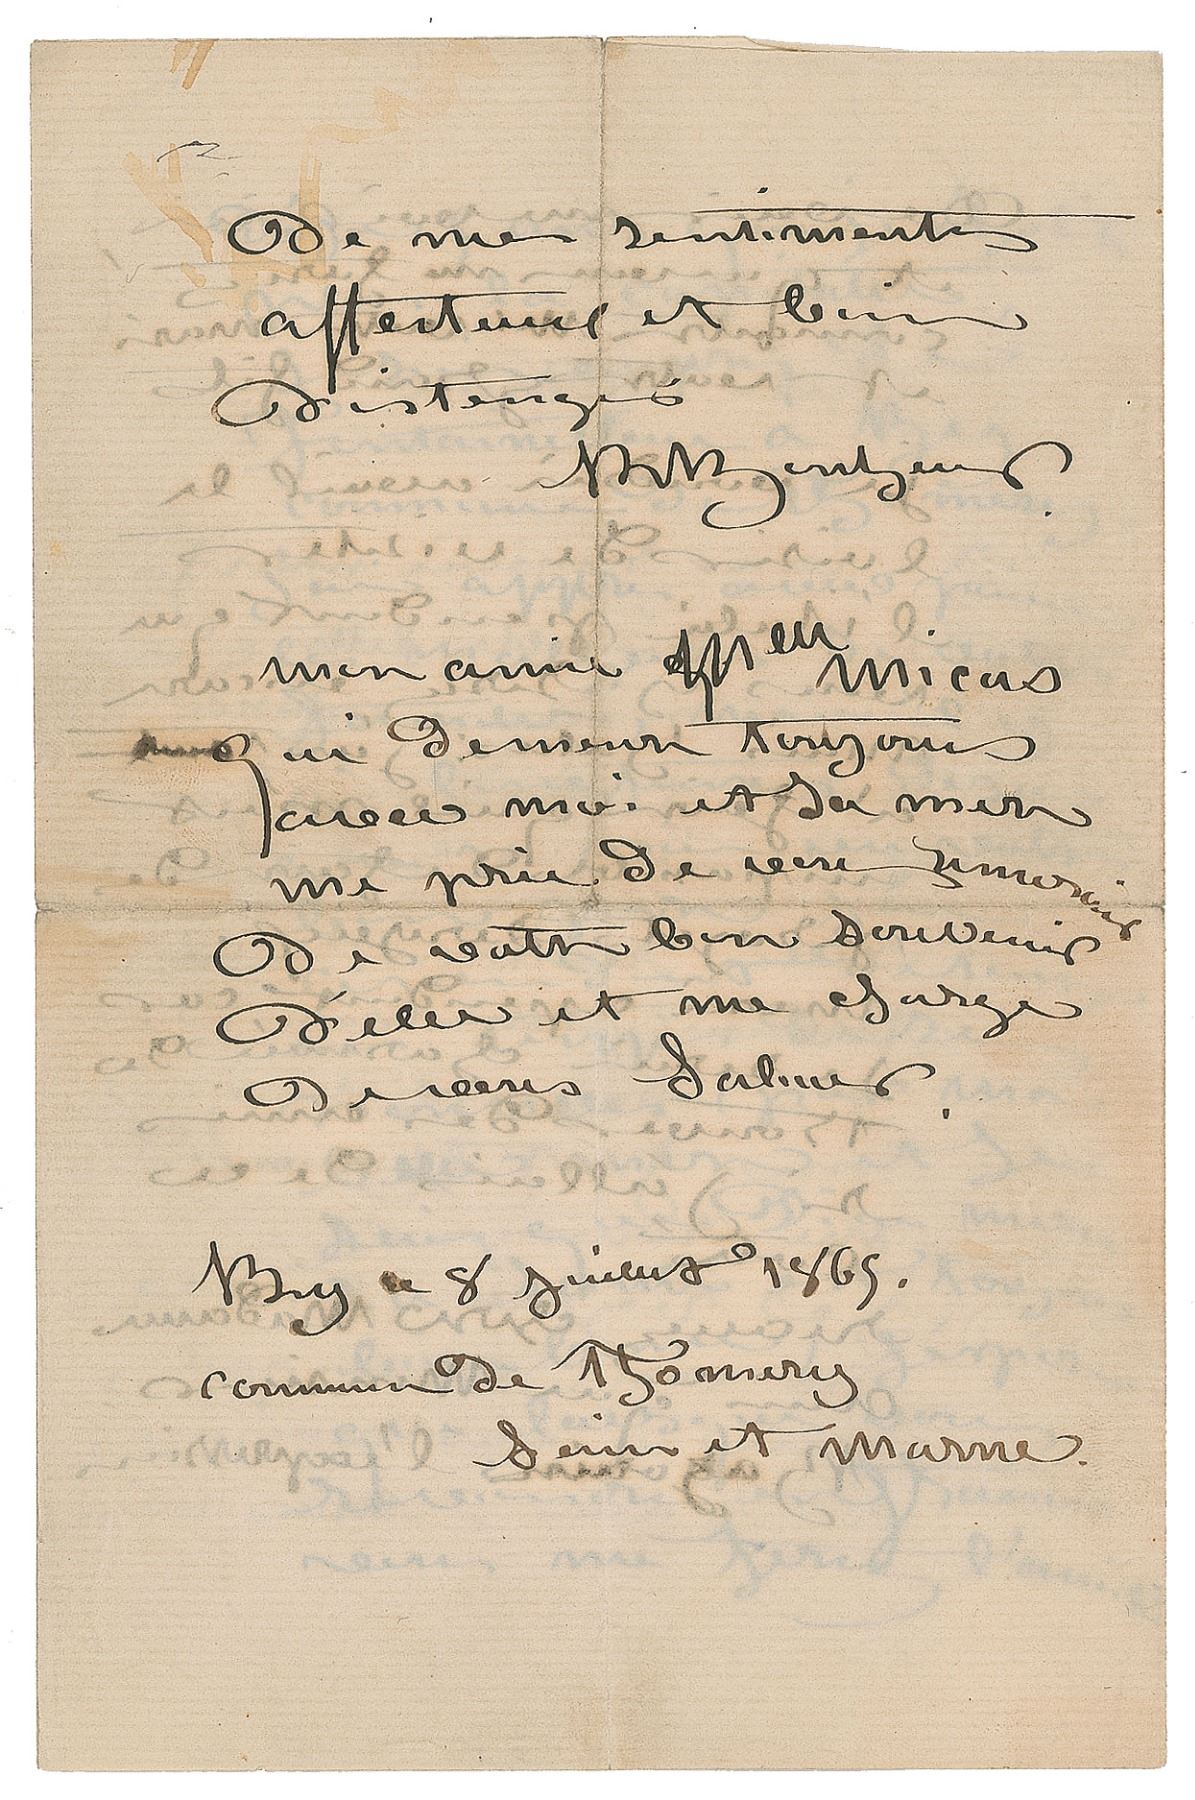 de mes sentiments
affectueux et bien
distingués
R Bonheur.
mon amie Melle Micas
qui demeure toujours
avec moi et sa mère
me prie de vous remercier
de votre bon souvenir
d'elle et me charge
de vous saluer.
By le 8 juillet 1865.
commune de Thomery
Seine et Marne.